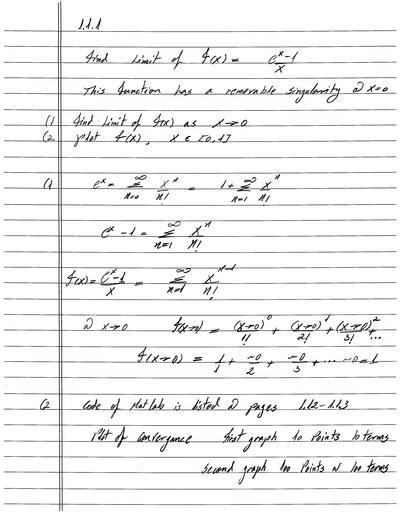 1.1.1
find Limit of f(x) = (e^x - 1)/x
This function has a removable singularity @ x=0
(1 find Limit of f(x) as x→0
(2 plot f(x), x ∈ [0,1]
(1 e^x = ∞Σn=0 x^n/n! = 1 + ∞Σn=1 x^n/n!
e^x - 1 = ∞Σn=1 x^n/n!
f(x) = (e^x - 1)/x = ∞Σn=1 x^(n-1)/n!
@ x→0 f(x→0) = (x→0)^0/1! + (x→0)^1/2! + (x→0)^2/3! + ...
f(x→0) = 1/1 + ~0/2 + ~0/3 + ... ~0 = 1
(2 Code of Matlab is listed @ pages 1.1.2-1.1.3
Plot of convergence first graph 10 Points 10 terms
second graph 100 Points w 100 terms